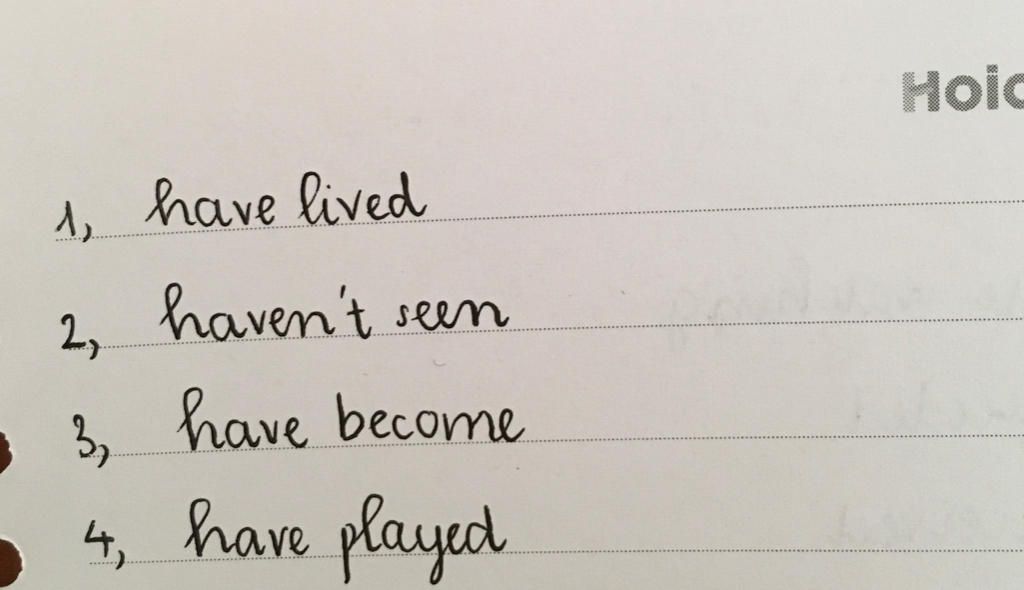 Hoic
1, have lived
2, haven't seen
3, have become
4, have played